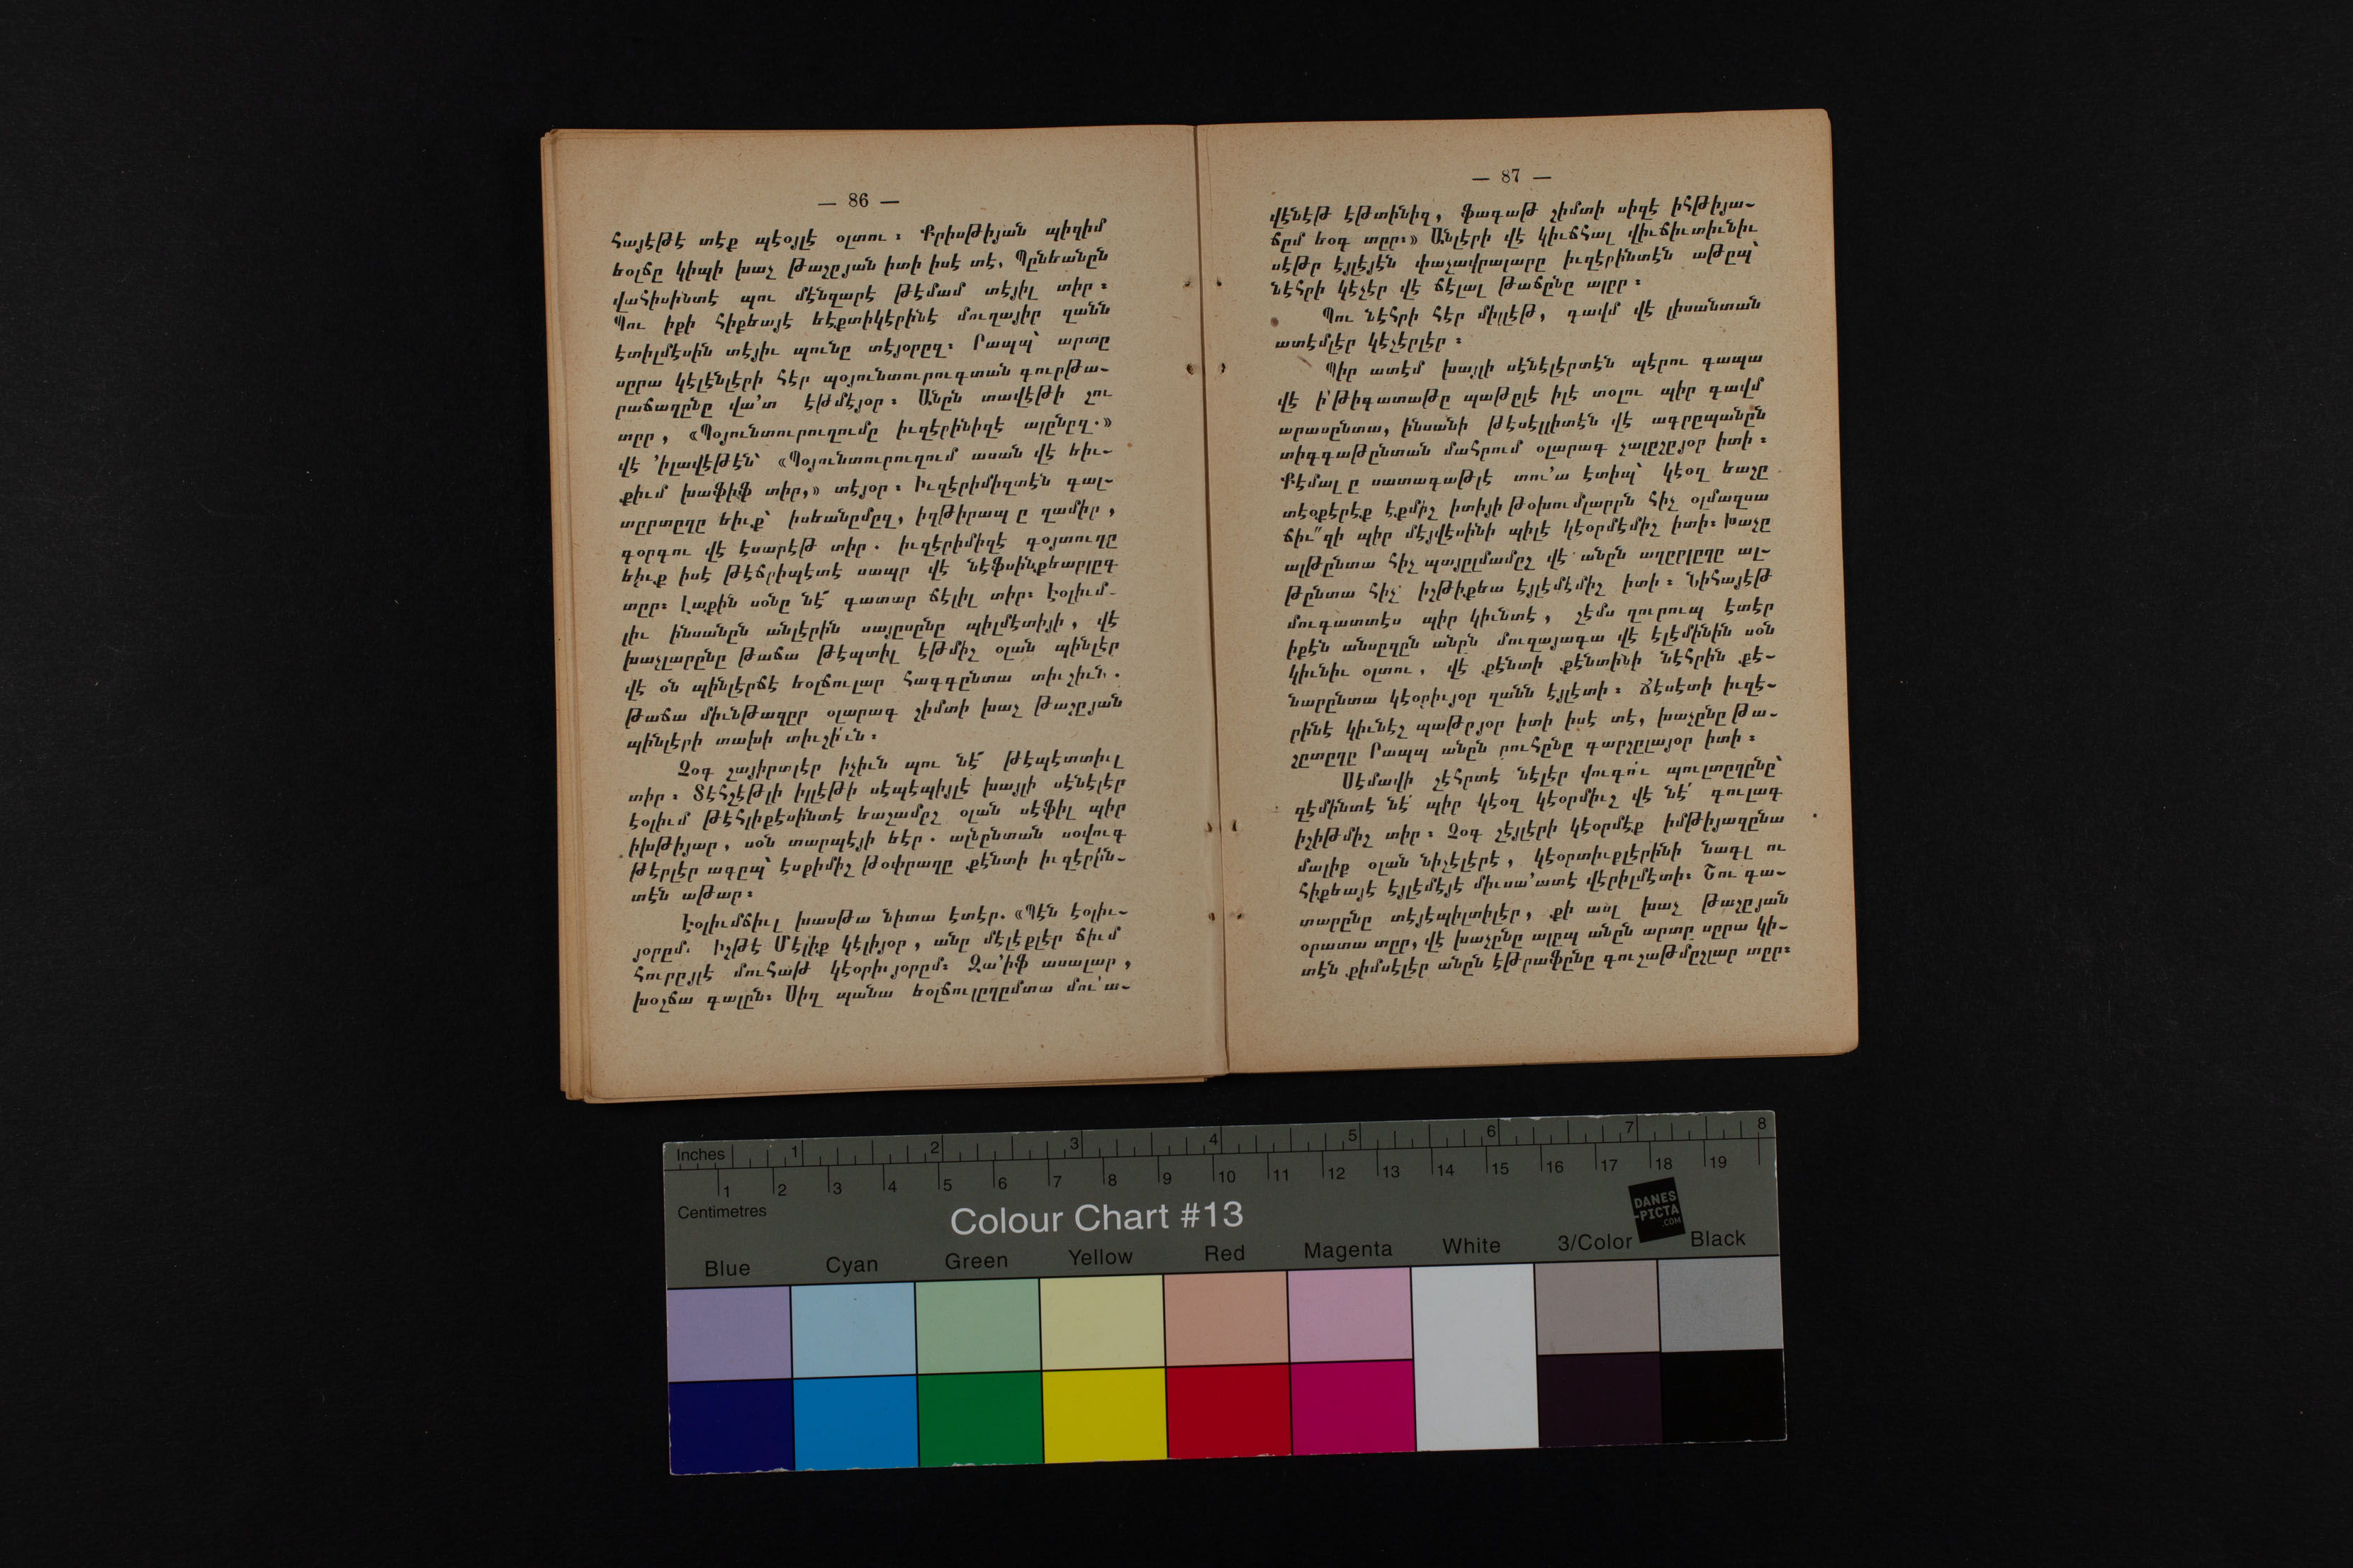 — 86 —
հայէթէ տէք պէօյլէ օլտու։ Քրիսթիյան պիզիմ
եօլճը կիպի խաչ թաշըյան իտի իսէ տէ, Պընեանըն
վահիսինտէ պու մէնզարէ թէմամ տէյիլ տիր։
Պու իքի հիքեայէ եէքտիկէրինէ մուղայիր զանն
էտիլմէսին տէյիւ պունը տէյօրըզ։ Րապպ՝ արտը
սըրա կէլէնլէրի հէր պօյունտուրուգտան գուրթա-
րաճաղընը վա՛տ էթմէյօր։ Անըն տավէթի շու
տըր, «Պօյունտուրուղումը իւզէրինիզէ ալընըզ.»
վէ ՚իլավէթէն՝ «Պօյունտուրուղում ասան վէ եիւ-
քիւմ խաֆիֆ տիր,» տէյօր։ Իւզէրիմիզտէն գալ-
տըրտըղը եիւք՝ իսեանըմըզ, իզթիրապ ը զամիր,
գօրգու վէ էսարէթ տիր. իւզէրիմիզէ գօյտուղը
եիւք իսէ թէճրիպէտէ սապր վէ նէֆսինքեարլըգ
տըր։ Լաքին սօնը նէ՜ գատար ճէլիլ տիր։ Էօլիւմ-
լիւ ինսանըն անլէրին սայըսընը պիլմէտիյի, վէ
խաչլարընը թաճա թէպտիլ էթմիշ օլան պինլէր
վէ օն պինլէրճէ եօլճուլար հագգընտա տիւշիւն.
թաճա միւնթազըր օլարագ շիմտի խաչ թաշըյան
պինլէրի տախի տիւշի՛ւն։
Չօգ շայիրտլէր իչիւն պու նէ՜ թէպէտտիւլ
տիր։ Տէհշէթլի իլլէթի սէպէպիյլէ խայլի սէնէլէր
էօլիւմ թէհլիքէսինտէ եաշամըշ օլան սէֆիլ պիր
իխթիյար, սօն տարպէյի եէր. ալնընտան սօվուգ
թէրլէր ագըպ՝ էսքիմիշ թօփրաղը քէնտի իւզէրին-
տէն աթար։
Էօլիւմճիւլ խասթա նիտա էտէր. «Պէն էօլիւ-
յօրըմ. Իշթէ Մէլիք կէլիյօր, անը մէլէքլէր ճիւմ
հուրըյլէ մուհաթ կէօրիւյօրըմ։ Զա՛իֆ ասալար,
խօշճա գալըն։ Սիզ պանա եօլճուլըղըմտա մու՛ա-
— 87 —
վէնէթ էթտինիզ, ֆագաթ շիմտի սիզէ իհթիյա-
ճըմ եօգ տըր։» Անլէրի վէ կիւճհալ վիւճիւտիւնիւ
սէթր էյլէյէն փաչավրալարը իւզէրինտէն աթըպ՝
նէհրի կէչէր վէ ճէլալ թաճընը ալըր։
Պու նէհրի հէր միլլէթ, գավմ վէ լիսանտան
ատէմլէր կէչէրլէր։
Պիր ատէմ խայլի սէնէլէրտէն պէրու գապա
վէ ի՛թիգատաթը պաթըլէ իլէ տօլու պիր գավմ
արասընտա, ինսանի թէսէլլիտէն վէ ագրըպանըն
տիգգաթընտան մահրում օլարագ չալըշըյօր իտի։
Քէմալ ը սատագաթլէ տու՛ա էտիպ՝ կէօզ եաշը
տէօքէրէք էքմիշ իտիյի թօխումլարըն հիչ օլմազսա
ճիւ՞զի պիր մէյվէսինի պիլէ կէօրմէմիշ իտի։ Խաչը
ալթընտա հիչ պայըլմամըշ վէ անըն աղըրլըղը ալ-
թընտա հիչ իշթիքեա էյլէմէմիշ իտի։ Նիհայէթ
մուգատտէս պիր կիւնտէ, շէմս ղուրուպ էտէր
իքէն անսըզըն անըն մուղայագա վէ էլէմինին սօն
կիւնիւ օլտու, վէ քէնտի քէնտինի նէհրին քէ-
նարընտա կէօրիւյօր զանն էյլէտի։ Ճէսէտի իւզէ-
րինէ կիւնէշ պաթըյօր իտի իսէ տէ, խաչընը թա-
շըտըղը Րապպ անըն րուհընը գարշըլայօր իտի։
Սէմավի շէհրտէ նէլէր վուգո՛ւ պուլտըղընը՝
զէմինտէ նէ՛ պիր կէօզ կէօրմիւշ վէ նէ՛ գուլագ
իշիթմիշ տիր։ Չօգ շէյլէրի կէօրմէք իմթիյազընա
մալիք օլան նիչէլէրէ, կէօրտիւքլէրինի նագլ ու
հիքեայէ էյլէմէյէ միւսա՛ատէ վէրիլմէտի։ Շու գա-
տարընը տէյէպիլտիլէր, քի ասլ խաչ թաշըյան
օրատա տըր, վէ խաչընը ալըպ անըն արտը սըրա կի-
տէն քիմսէլէր անըն էթրաֆընը գուշաթմըշլար տըր։
Inches 1 2 3 4 5 6 7 8
1 2 3 4 5 6 7 8 9 10 11 12 13 14 15 16 17 18 19
Centimetres
Colour Chart #13
DANES
-PICTA
.COM
Blue Cyan Green Yellow Red Magenta White 3/Color Black